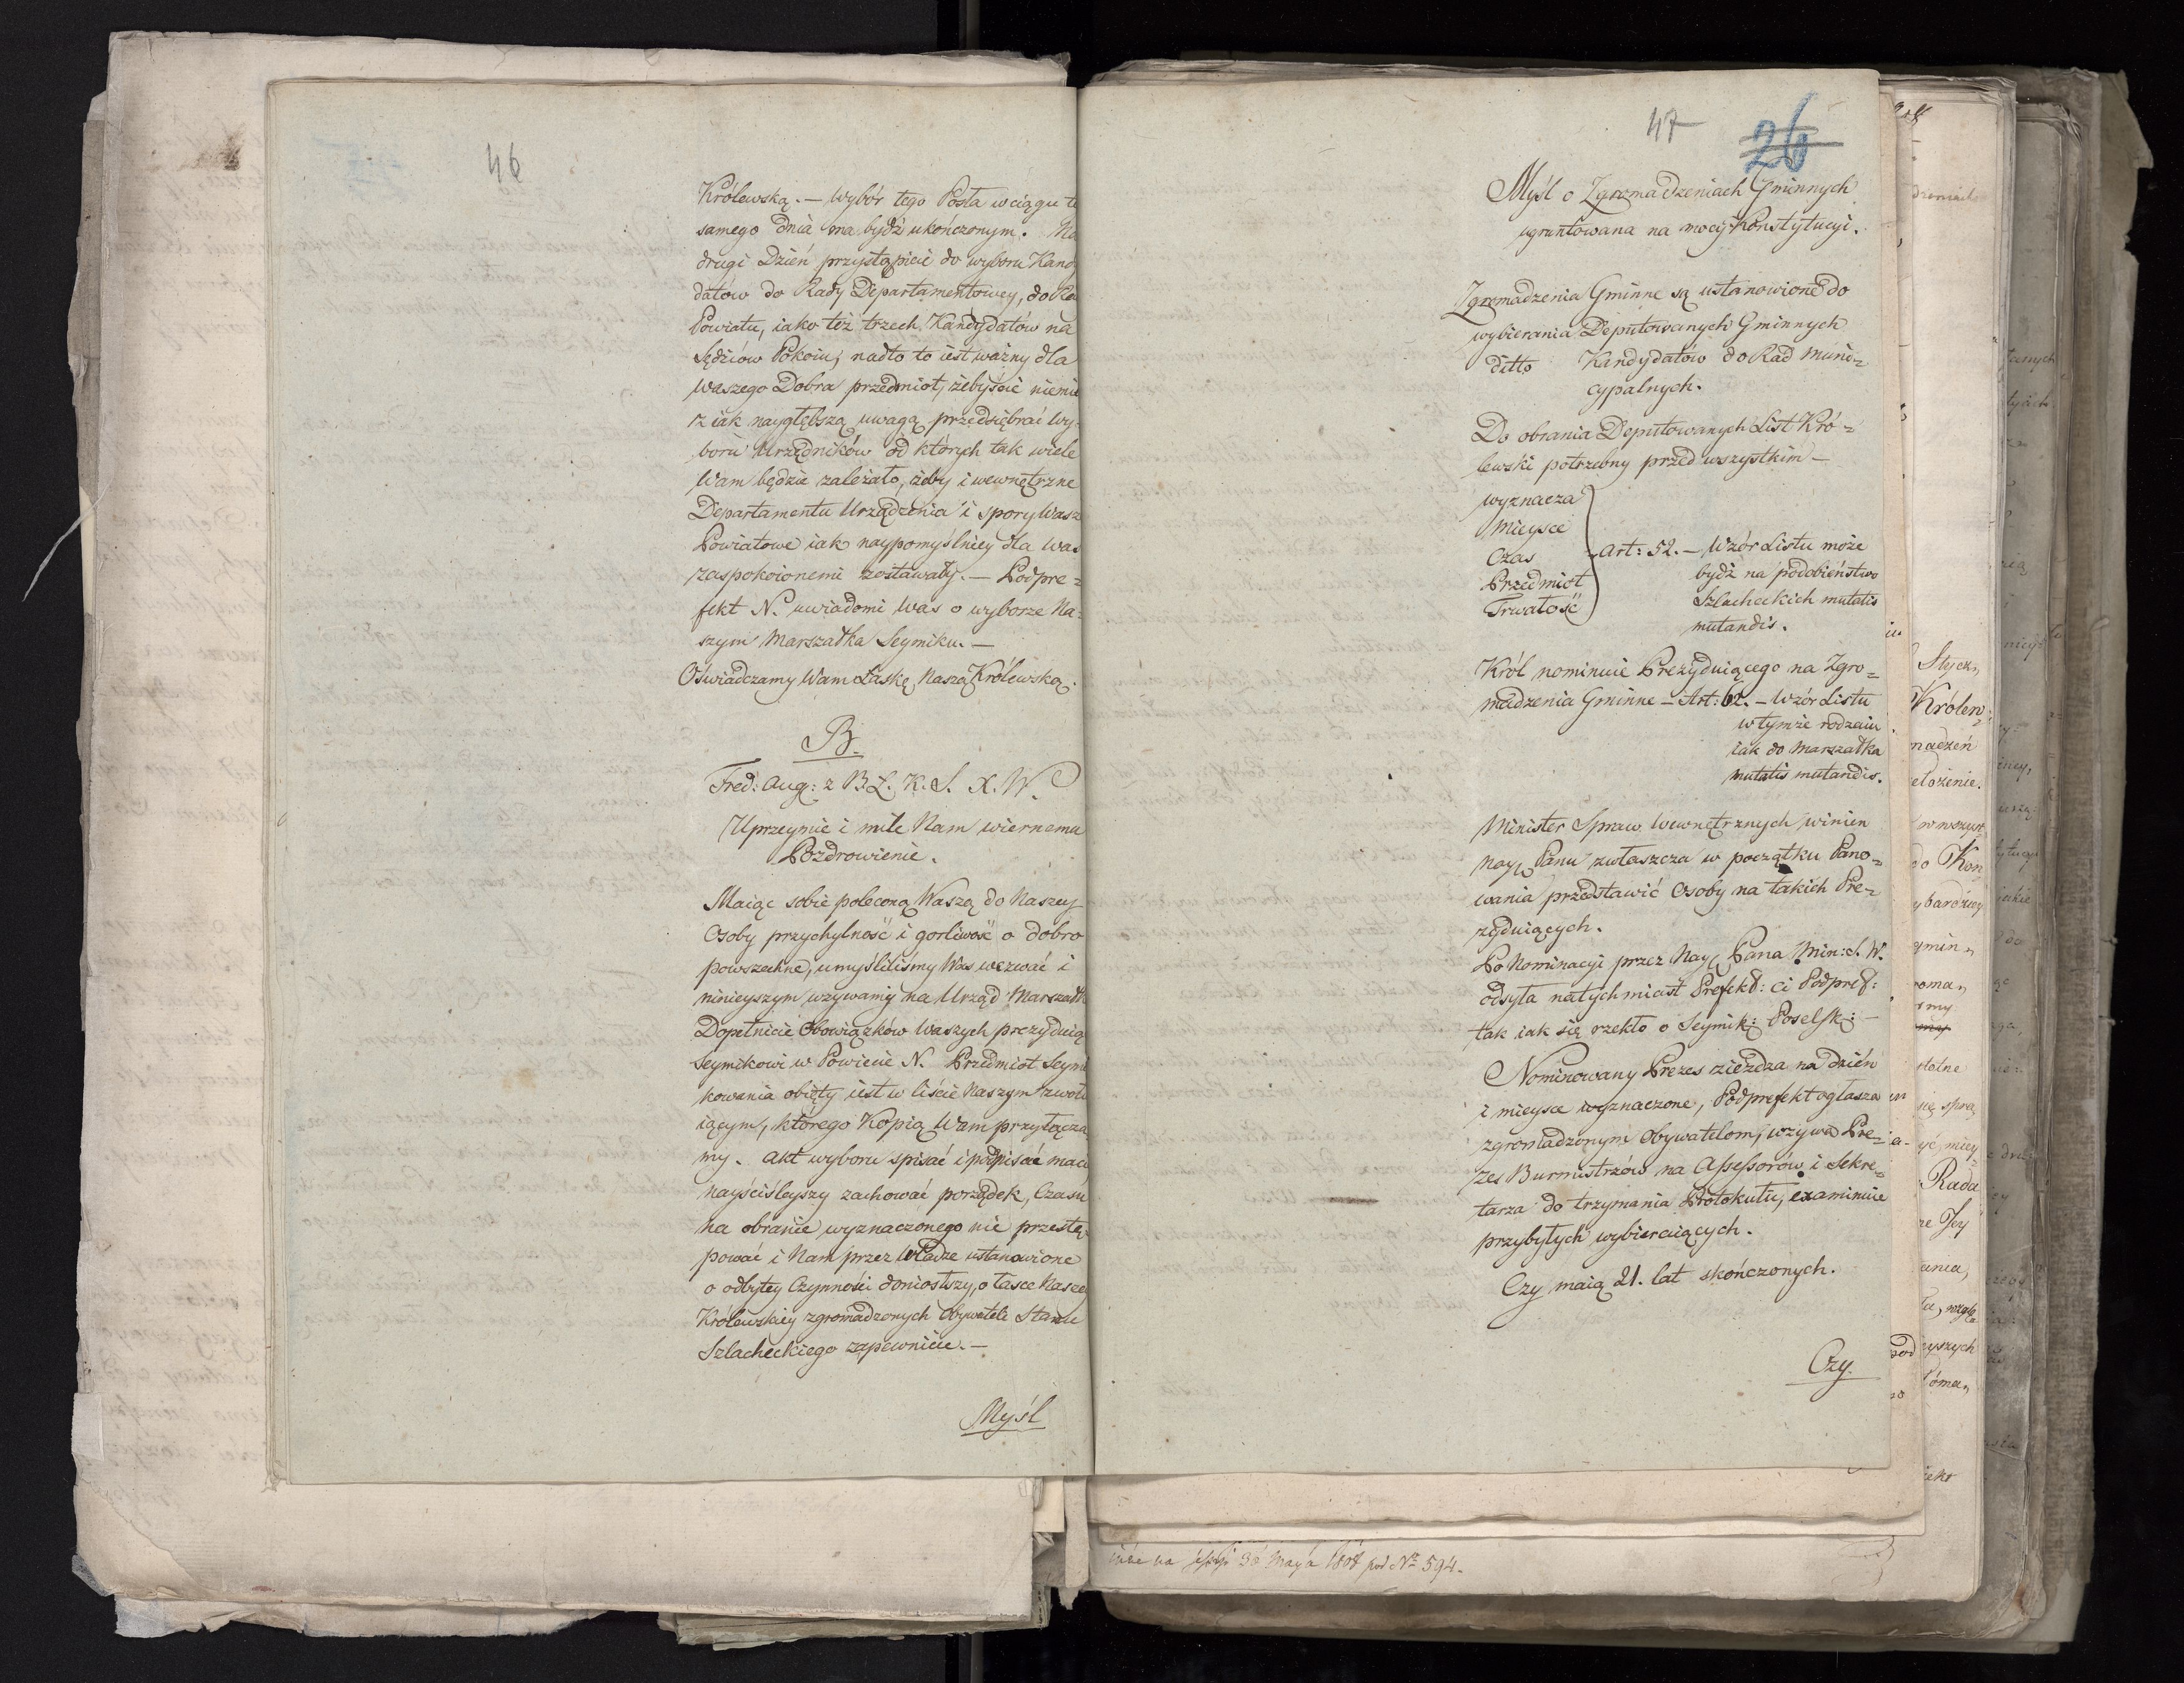 46
Królewską. – Wybór tego Posła w ciągu te
samego dnia ma bydź ukończonym. Na
drugi Dzień przystąpicie do wyboru Kandy
datów do Rady Departamentowey, do Ra
Powiatu, iako też trzech Kandydatów na
Sędziów Pokoiu; nadto to iest ważny dla
waszego Dobra przedmiot, żebyście niemie
z iak naygłębszą uwagą przedsiębrać wy-
boru Urzędników od których tak wiele
Wam będzie zależało, żeby i wewnętrzne
Departamentu Urządzenia i spory Wasze
Powiatowe iak naypomyślniey dla Was
zaspokoionemi zostawały. – Podpre=
fekt N. uwiadomi Was o wyborze Na=
szym Marszałka Seymiku. –
Oświadczamy Wam Łaskę Naszą Królewską.
B.
Fred: Aug: z B. Ł. K. S. X. W.
Uprzeymie i mile Nam wiernemu
Pozdrowienie.
Maiąc sobie poleconą Waszą do Naszey
Osoby przychylność i gorliwość o dobro
powszechne, umyśliliśmy Was wezwać i
ninieyszym wzywamy na Urząd Marszałk
Dopełnicie Obowiązków Waszych prezyduią
Seymikowi w Powiecie N. Przedmiot Seymi
kowania obięty iest w liście Naszym zwołu
iącym, którego Kopią Wam przyłącza
my. Akt wyboru spisać i podpisać macie
nayściśleyszy zachować porządek, Czasu
na obranie wyznaczonego nie przestę-
pować i Nam przez Władze ustanowione
o odbytey Czynności doniosłszy, o łasce Naszey
Królewskiey zgromadzonych Obywateli Stanu
Szlacheckiego zapewnicie. –
Myśl
47
26
Myśl o Zgromadzeniach Gminnych
ugruntowana na mocy Konstytucyi.
Zgromadzenia Gminne są ustanowione do
wybierania Deputowanych Gminnych
ditto Kandydatów do Rad Muni=
cypalnych.
Do obrania Deputowanych List Kró=
lewski potrzebny przed wszystkim –
wyznacza
Mieysce
Czas
Przedmiot
Trwałość
Art: 52. – Wzór Listu może
bydź na podobieństwo
Szlacheckich mutatis
mutandis.
Król nominuie Prezyduiącego na Zgro=
madzenia Gminne – Art: 62. – Wzór Listu
w tymże rodzaiu
iak do Marszałka
mutatis mutandis.
Minister Spraw Wewnętrznych winien
Nayj. Panu zwłaszcza w początku Pano=
wania przedstawić Osoby na takich Pre=
zyduiących.
Po Nominacyi przez Nayj. Pana Min: S. W.
odsyła natychmiast Prefekt: ci Podpref:
tak iak się rzekło o Seymik: Poselsk: –
Nominowany Prezes ziezdza na dzień
i mieysce wyznaczone, Podprefekt ogłasza
zgromadzonym Obywatelom, wzywa Pre=
zes Burmistrzów na Assessorów i Sekre=
tarza do trzymania Protokułu, examinuie
przybyłych wybieraiących.
Czy maią 21. lat skończonych.
Czy.
na sessyi 30 Maya 1808 pod No 594.